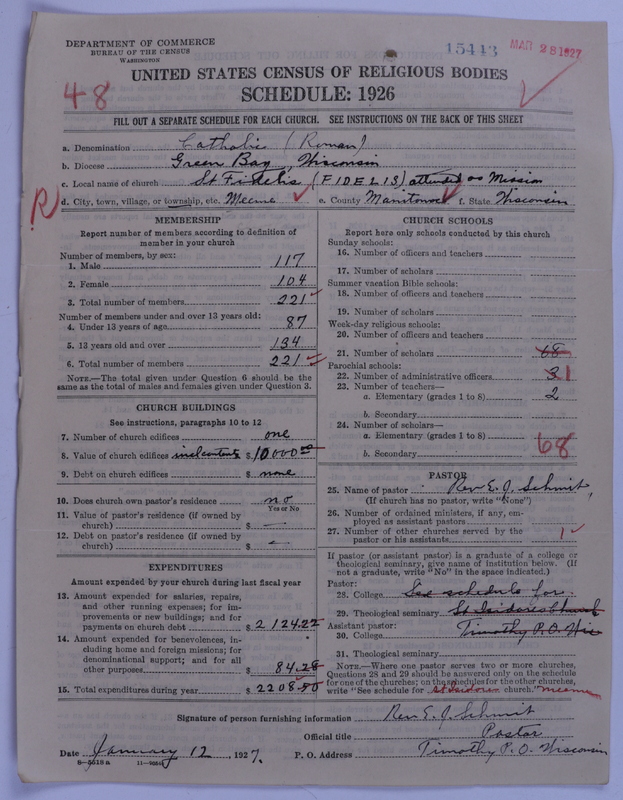 DEPARTMENT OF COMMERCE
BUREAU OF THE CENSUS
WASHINGTON
15443 MAR 28 1927
UNITED STATES CENSUS OF RELIGIOUS BODIES
48
SCHEDULE: 1926
FILL OUT A SEPARATE SCHEDULE FOR EACH CHURCH. SEE INSTRUCTIONS ON THE BACK OF THIS SHEET
a. Denomination Catholic (Roman)
b. Diocese Green Bay, Wisconsin
c. Local name of church St Fidelis (FIDELIS) attended as Mission
R d. City, town, village, or township, etc. Meeme e. County Manitowoc f. State Wisconsin
MEMBERSHIP
Report number of members according to definition of
member in your church
Number of members, by sex:
1. Male 117
2. Female 104
3. Total number of members 221
Number of members under and over 13 years old:
4. Under 13 years of age 87
5. 13 years old and over 134
6. Total number of members 221
NOTE.—The total given under Question 6 should be the
same as the total of males and females given under Question 3.
CHURCH BUILDINGS
See instructions, paragraphs 10 to 12
7. Number of church edifices one
8. Value of church edifices $ 10000.00
9. Debt on church edifices $ none
10. Does church own pastor's residence no
Yes or No
11. Value of pastor's residence (if owned by
church) $ —
12. Debt on pastor's residence (if owned by
church) $ —
EXPENDITURES
Amount expended by your church during last fiscal year
13. Amount expended for salaries, repairs,
and other running expenses; for im-
provements or new buildings; and for
payments on church debt $ 2124.22
14. Amount expended for benevolences, in-
cluding home and foreign missions; for
denominational support; and for all
other purposes $ 84.28
15. Total expenditures during year $ 2208.50
CHURCH SCHOOLS
Report here only schools conducted by this church
Sunday schools:
16. Number of officers and teachers
17. Number of scholars
Summer vacation Bible schools:
18. Number of officers and teachers
19. Number of scholars
Week-day religious schools:
20. Number of officers and teachers
21. Number of scholars 68
Parochial schools:
22. Number of administrative officers 3 1
23. Number of teachers—
a. Elementary (grades 1 to 8) 2
b. Secondary
24. Number of scholars—
a. Elementary (grades 1 to 8) 68
b. Secondary
PASTOR
25. Name of pastor Rev E. J. Schmit,
(If church has no pastor, write "None")
26. Number of ordained ministers, if any, em-
ployed as assistant pastors
27. Number of other churches served by the
pastor or his assistants 1
If pastor (or assistant pastor) is a graduate of a college or
theological seminary, give name of institution below. (If
not a graduate, write "No" in the space indicated.)
Pastor:
28. College See schedule for
29. Theological seminary St Isidores Church
Assistant pastor:
30. College Timothy P.O. Wis
31. Theological seminary
NOTE.—Where one pastor serves two or more churches,
Questions 28 and 29 should be answered only on the schedule
for one of the churches; on the schedules for the other churches,
write "See schedule for St Isidore church." Meeme
Signature of person furnishing information Rev E. J. Schmit
Official title Pastor
Date January 12, 1927. P. O. Address Timothy P.O. Wisconsin
8-5518a